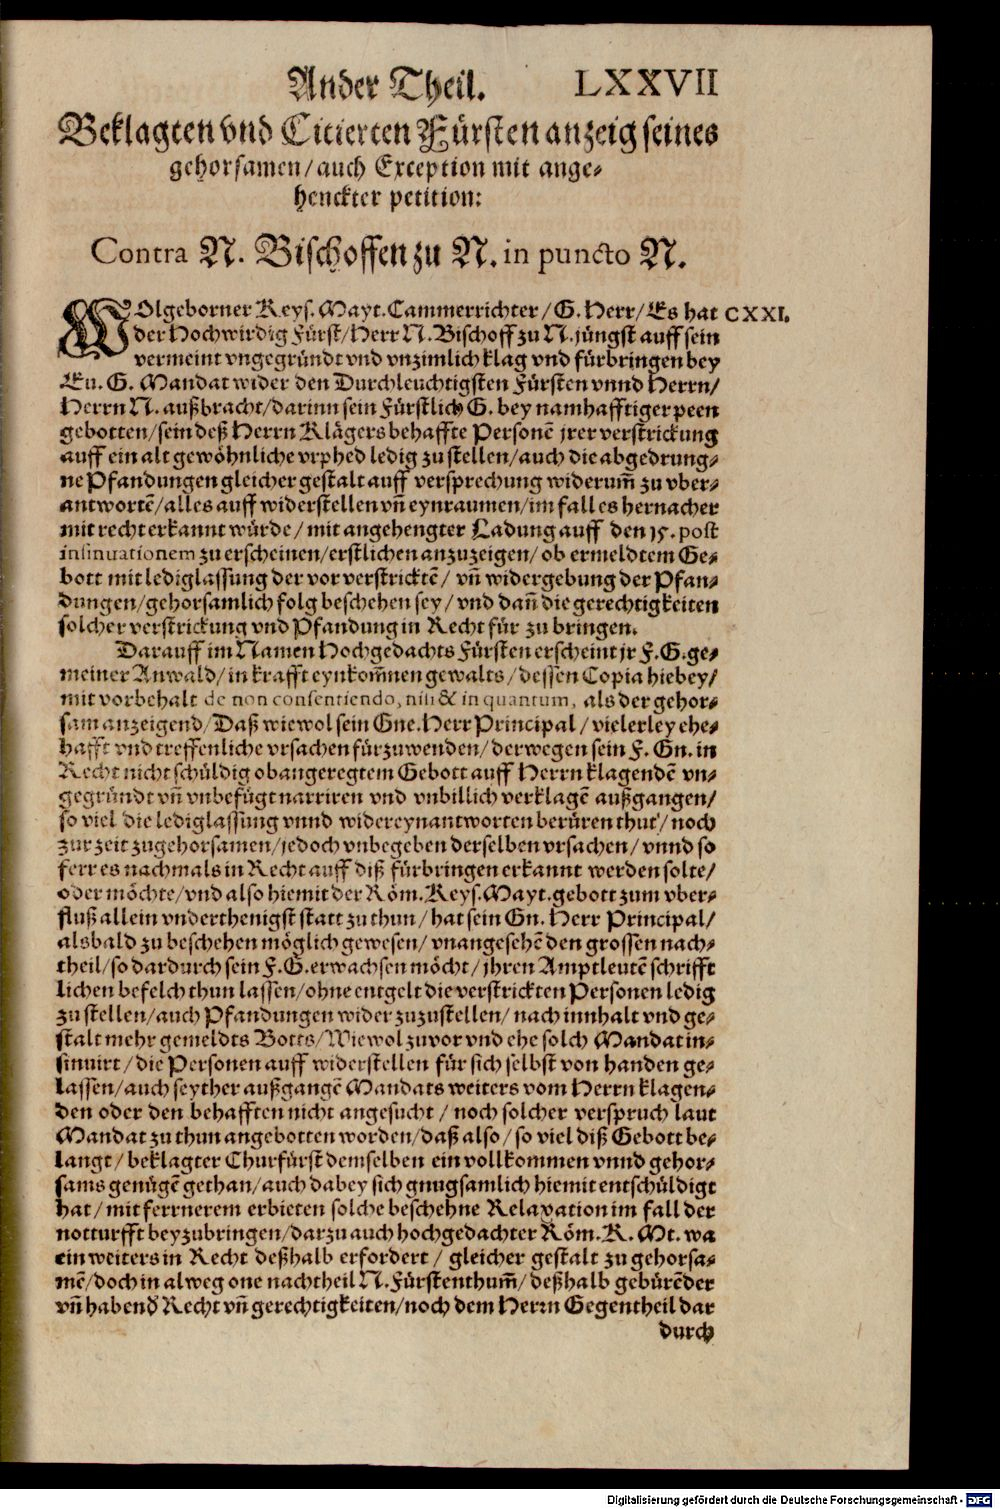 Ander Theil. LXXVII
Beklagten vnd Citierten Fürsten anzeig seines
gehorsamen/auch Exception mit ange⸗
henckter petition:
Contra N. Bischoffen zu N. in puncto N.
WOlgeborner Keys. Mayt. Cammerrichter/G. Herr/Es hat CXXI.
der Hochwirdig Fürst/Herr N. Bischoff zu N. jüngst auff sein
vermeint vngegründt vnd vnzimlich klag vnd fürbringen bey
Eu. G. Mandat wider den Durchleuchtigsten Fürsten vnnd Herrn/
Herrn N. außbracht/darinn sein Fürstlich G. bey namhafftiger peen
gebotten/sein deß Herrn Klägers behaffte Personē jrer verstrickung
auff ein alt gewöhnliche vrphed ledig zu stellen/auch die abgedrung⸗
ne Pfandungen gleicher gestalt auff versprechung widerum̃ zu vber⸗
antwortē/alles auff widerstellen vñ eynraumen/im fall es hernacher
mit recht erkannt würde/mit angehengter Ladung auff den 15. post
insinuationem zu erscheinen/erstlichen anzuzeigen/ob ermeldtem Ge⸗
bott mit lediglassung der vor verstricktē/vñ widergebung der Pfan⸗
dungen/gehorsamlich folg beschehen sey/vnd dañ die gerechtigkeiten
solcher verstrickung vnd Pfandung in Recht für zu bringen.
Darauff im Namen Hochgedachts Fürsten erscheint jr F. G. ge⸗
meiner Anwald/in krafft eynkom̃nen gewalts/dessen Copia hiebey/
mit vorbehalt de non consentiendo, nisi & in quantum, als der gehor⸗
sam anzeigend/Daß wiewol sein Gne. Herr Principal/vielerley ehe⸗
hafft vnd treffenliche vrsachen fürzuwenden/derwegen sein F. Gn. in
Recht nicht schüldig obangeregtem Gebott auff Herrn klagendē vn⸗
gegründt vñ vnbefügt narriren vnd vnbillich verklagē außgangen/
so viel die lediglassung vnnd widereynantworten berüren thut/noch
zur zeit zugehorsamen/jedoch vnbegeben derselben vrsachen/vnnd so
ferr es nachmals in Recht auff diß fürbringen erkannt werden solte/
oder möchte/vnd also hiemit der Röm. Keys. Mayt. gebott zum vber⸗
fluß allein vnderthenigst statt zu thun/hat sein Gn. Herr Principal/
alsbald zu beschehen möglich gewesen/vnangesehē den grossen nach⸗
theil/so dardurch sein F. G. erwachsen möcht/jhren Amptleutē schrifft
lichen befelch thun lassen/ohne entgelt die verstrickten Personen ledig
zu stellen/auch Pfandungen wider zuzustellen/nach innhalt vnd ge⸗
stalt mehr gemeldts Botts/Wiewol zuvor vnd ehe solch Mandat in⸗
sinuirt/die Personen auff widerstellen für sich selbst von handen ge⸗
lassen/auch seyther außgangē Mandats weiters vom Herrn klagen⸗
den oder den behafften nicht angesucht/noch solcher verspruch laut
Mandat zu thun angebotten worden/daß also/so viel diß Gebott be⸗
langt/beklagter Churfürst demselben ein vollkommen vnnd gehor⸗
sams genügē gethan/auch dabey sich gnugsamlich hiemit entschüldigt
hat/mit ferrnerem erbieten solche beschehne Relaxation im fall der
notturfft beyzubringen/darzu auch hochgedachter Röm. K. Mt. wa
ein weiters in Recht deßhalb erfordert/gleicher gestalt zu gehorsa⸗
mē/doch in alweg one nachtheil N. Fürstenthum̃/deßhalb gebürēder
vñ habend Recht vñ gerechtigkeiten/noch dem Herrn Gegentheil dar
durch
Digitalisierung gefördert durch die Deutsche Forschungsgemeinschaft - DFG